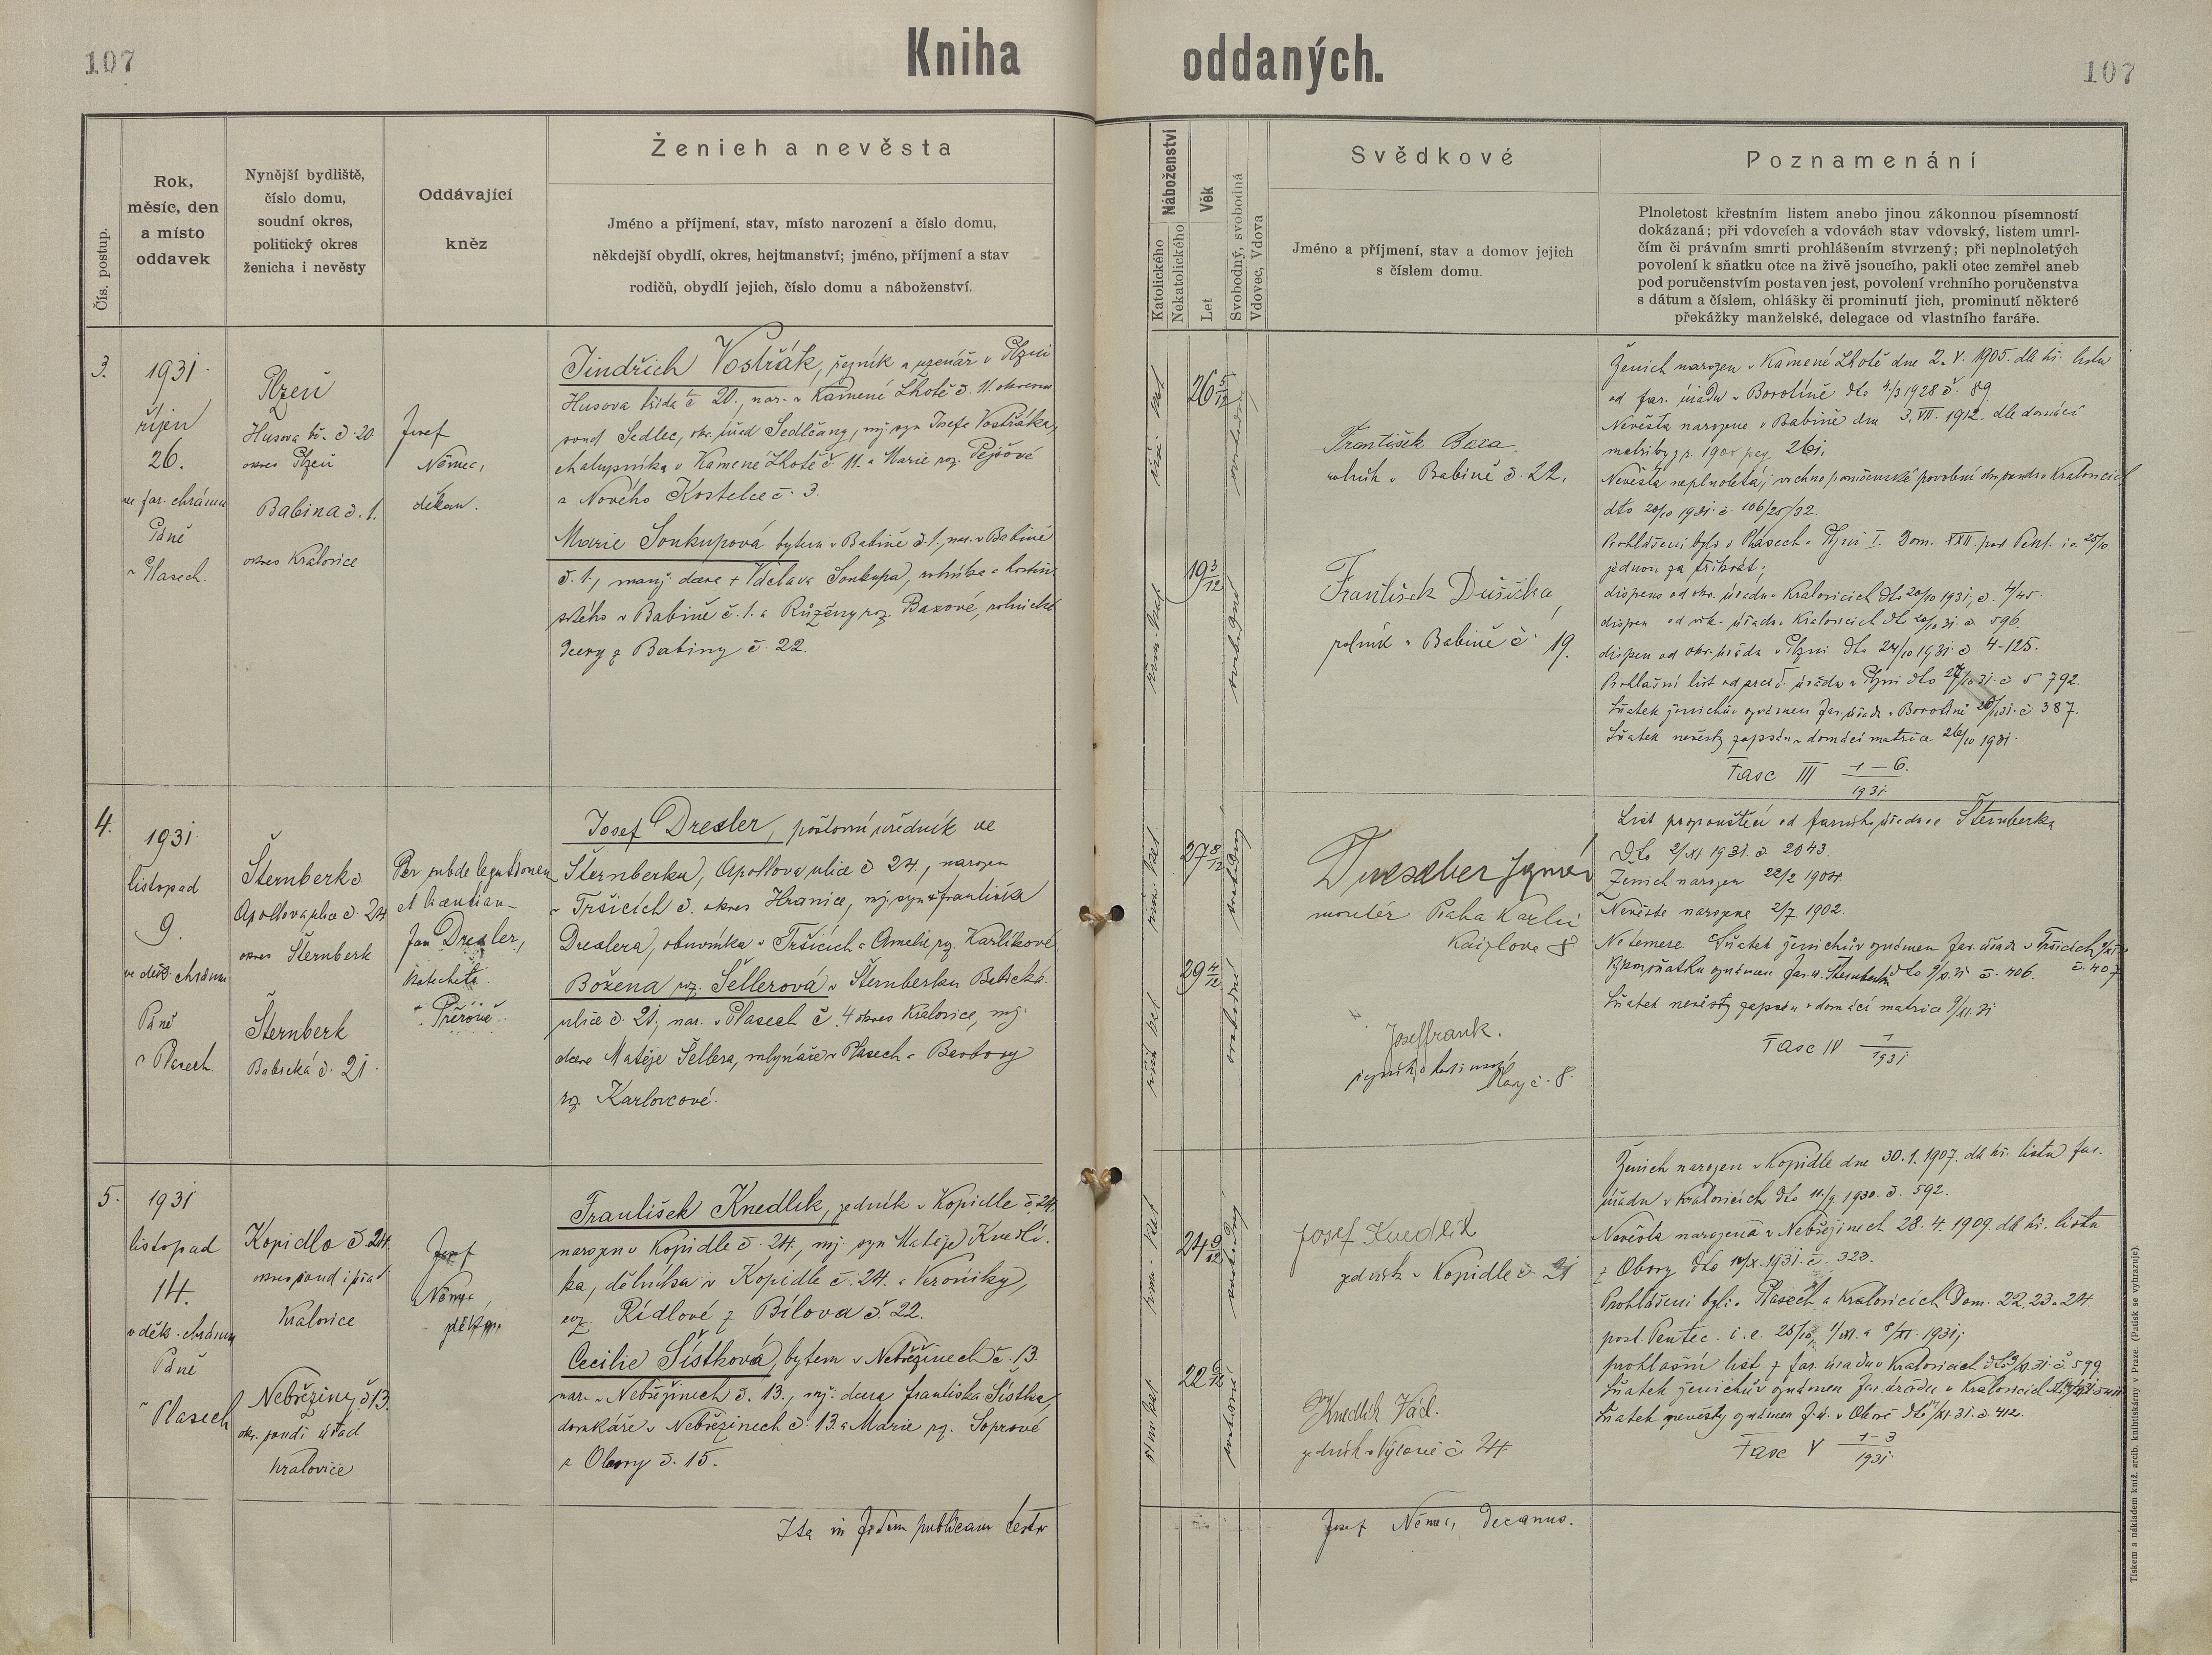 107
Kniha oddaných.
107
Čís. postup.
Rok,
měsíc, den
a místo
oddavek
Nynější bydliště,
číslo domu,
soudní okres,
politický okres
ženicha i nevěsty
Oddávající
kněz
Ženich a nevěsta
Jméno a příjmení, stav, místo narození a číslo domu,
někdejší obydlí, okres, hejtmanství; jméno, příjmení a stav
rodičů, obydlí jejich, číslo domu a náboženství.
Náboženství
Katolického
Nekatolického
Věk
Let
Svobodný, svobodná
Vdovec, Vdova
Svědkové
Jméno a příjmení, stav a domov jejich
s číslem domu.
Poznamenání
Plnoletost křestním listem anebo jinou zákonnou písemností
dokázaná; při vdovcích a vdovách stav vdovský, listem umrl-
čím či právním smrti prohlášením stvrzený; při neplnoletých
povolení k sňatku otce na živě jsoucího, pakli otec zemřel aneb
pod poručenstvím postaven jest, povolení vrchního poručenstva
s dátum a číslem, ohlášky či prominutí jich, prominutí některé
překážky manželské, delegace od vlastního faráře.
3.
1931
říjen
26.
ve far. chrámu
Páně
v Plasech.
Plzeň
Husova tř. č. 20
okres Plzeň
Babina č. 1.
okres Kralovice
Josef
Němec,
děkan.
Jindřich Vostřák, řezník a uzenář v Plzni
Husova třída č. 20., nar. v Kamené Lhotě č. 11. okresu
soud Sedlec, okr. úřad Sedlčany, mž. syn Josefa Vostřáka,
chalupníka v Kamené Lhotě č. 11. a Marie roz. Pejšové
z Nového Kostelce č. 3.
Marie Soukupová bytem v Babině č. 1., nar. v Babině
č. 1., manž. dcera † Václava Soukupa, rolníka a hostin
ského v Babině č. 1. a Růženy roz. Baxové, rolnické
dcery z Babiny č. 22.
26 5/12
19 3/12
František Baxa
rolník v Babině č. 22.
František Dušička,
rolník v Babině č. 19.
Ženich narozen v Kamené Lhotě dne 2. V. 1905. dle kř. listu
od far. úřadu v Borotíně dto 4/3 1928 č. 89.
Nevěsta narozena v Babině dne 3. VII. 1912. dle domácí
matriky
Nevěsta neplnoletá; vrchnoporučenské povolení okr. soudu v Kralovicích
dto 20/10 1931 č. 106/25/32.
Prohlášeni byli v Plasech a Plzni I. Dom. XXII. post Pent. i.e. 25/10.
jednou za třikrát;
dispens od okr. úřadu v Kralovicích dto 20/10 1931, č. 4/45.
dispen od vik. úřadu v Kralovicích dto 20/10 31 č. 596.
dispen od okr. úřadu v Plzni dto 24/10 1931 č. 4-125.
Prohlašní list od arcid. úřadu v Plzni dto 27/10 31. č. 5792.
Sňatek ženichův oznámen far. úřadu v Borotíně 26/10 31. č. 387.
Sňatek nevěsty zapsán v domácí matrice 26/10 1931.
Fasc III 1–6./1931
4.
1931
listopad
9.
ve děk. chrámu
Páně
v Plasech.
Šternberk
Apollova ulice č. 24
okres Šternberk
Šternberk
Babická č. 21.
Per subdelegationem
Jan Drexler,
katecheta
v Přerově.
Josef Drexler, poštovní úředník ve
Šternberku, Apollova ulice č. 24., narozen
v Tršicích č. okres Hranice, mž. syn † Františka
Drexlera, obuvníka v Tršicích a Amelie roz. Karlíkové
Božena roz. Šellerová v Šternberku Babická
ulice č. 21, nar. v Plasech č. 4 okres Kralovice, mž.
dcera Matěje Šellera, mlynáře v Plasech a Barbory
roz. Karlovcové.
27 8/12
29 4/12
montér Praha Karlín
Kaizlova 8
Josef Frank.
řezník a hostinský
Plasy č. 8.
List propouštěcí od farního úřadu ve Šternberku
dto 2/XI 1931. č. 2043.
Ženich narozen 22/2 1904.
Nevěsta narozena 2/7 1902.
Ne temere Sňatek ženichův oznámen far. úřadu v Tršicích
č. 407
Výkon sňatku oznámen far. ú. Šternberk dto 9/XI. 31 č. 406.
Sňatek nevěsty zapsán v domácí matrice 9/XI. 31
Fasc IV 1/1931
5.
1931
listopad
14.
v děk. chrámu
Páně
v Plasech
Kopidlo č. 24.
okres soud i úřad
Kralovice
Nebřeziny č. 13.
okr. soud i úřad
Kralovice
Josef
Němec,
děkan.
František Knedlík, zedník v Kopidle č. 24.
narozen v Kopidle č. 24., mž. syn Matěje Knedlí-
ka, dělníka v Kopidle č. 24. a Veroniky,
roz. Rídlové z Bílova č. 22.
Cecilie Šístková, bytem v Nebřezinech č. 13.
nar. v Nebřezinech č. 13., mž. dcera Františka Šístka,
domkáře v Nebřezinech č. 13. a Marie roz. Soprové
z Obory č. 15.
24 9/12
22 6/12
Josef Knedlík
zedník v Kopidle č. 21
Knedlík Václ.
zedník v Výrově č. 24
Ženich narozen v Kopidle dne 30. 1. 1907. dle kř. listu far.
úřadu v Kralovicích dto 11/9 1930. č. 592.
Nevěsta narozená v Nebřezinech 28. 4. 1909. dle kř. listu
z Obory dto 10/X. 1931. č. 323.
Prohlášeni byli v Plasech a Kralovicích Dom. 22, 23 a 24.
post. Pentec. i. e. 25/10, 1/XI. a 8/XI. 1931;
prohlašní list z far. úřadu v Kralovicích dto 9/XI. 31. č. 599
Sňatek ženichův oznámen far. úřadu v Kralovicích
Sňatek nevěsty oznámen f. ú. v Oboře dto 14/XI. 31. č. 412.
Fasc V 1–3/1931
Ita in fidem publicam testor
Josef Němec, decanus.
Tiskem a nákladem kníž. arcib. knihtiskárny v Praze. (Patisk se vyhrazuje)